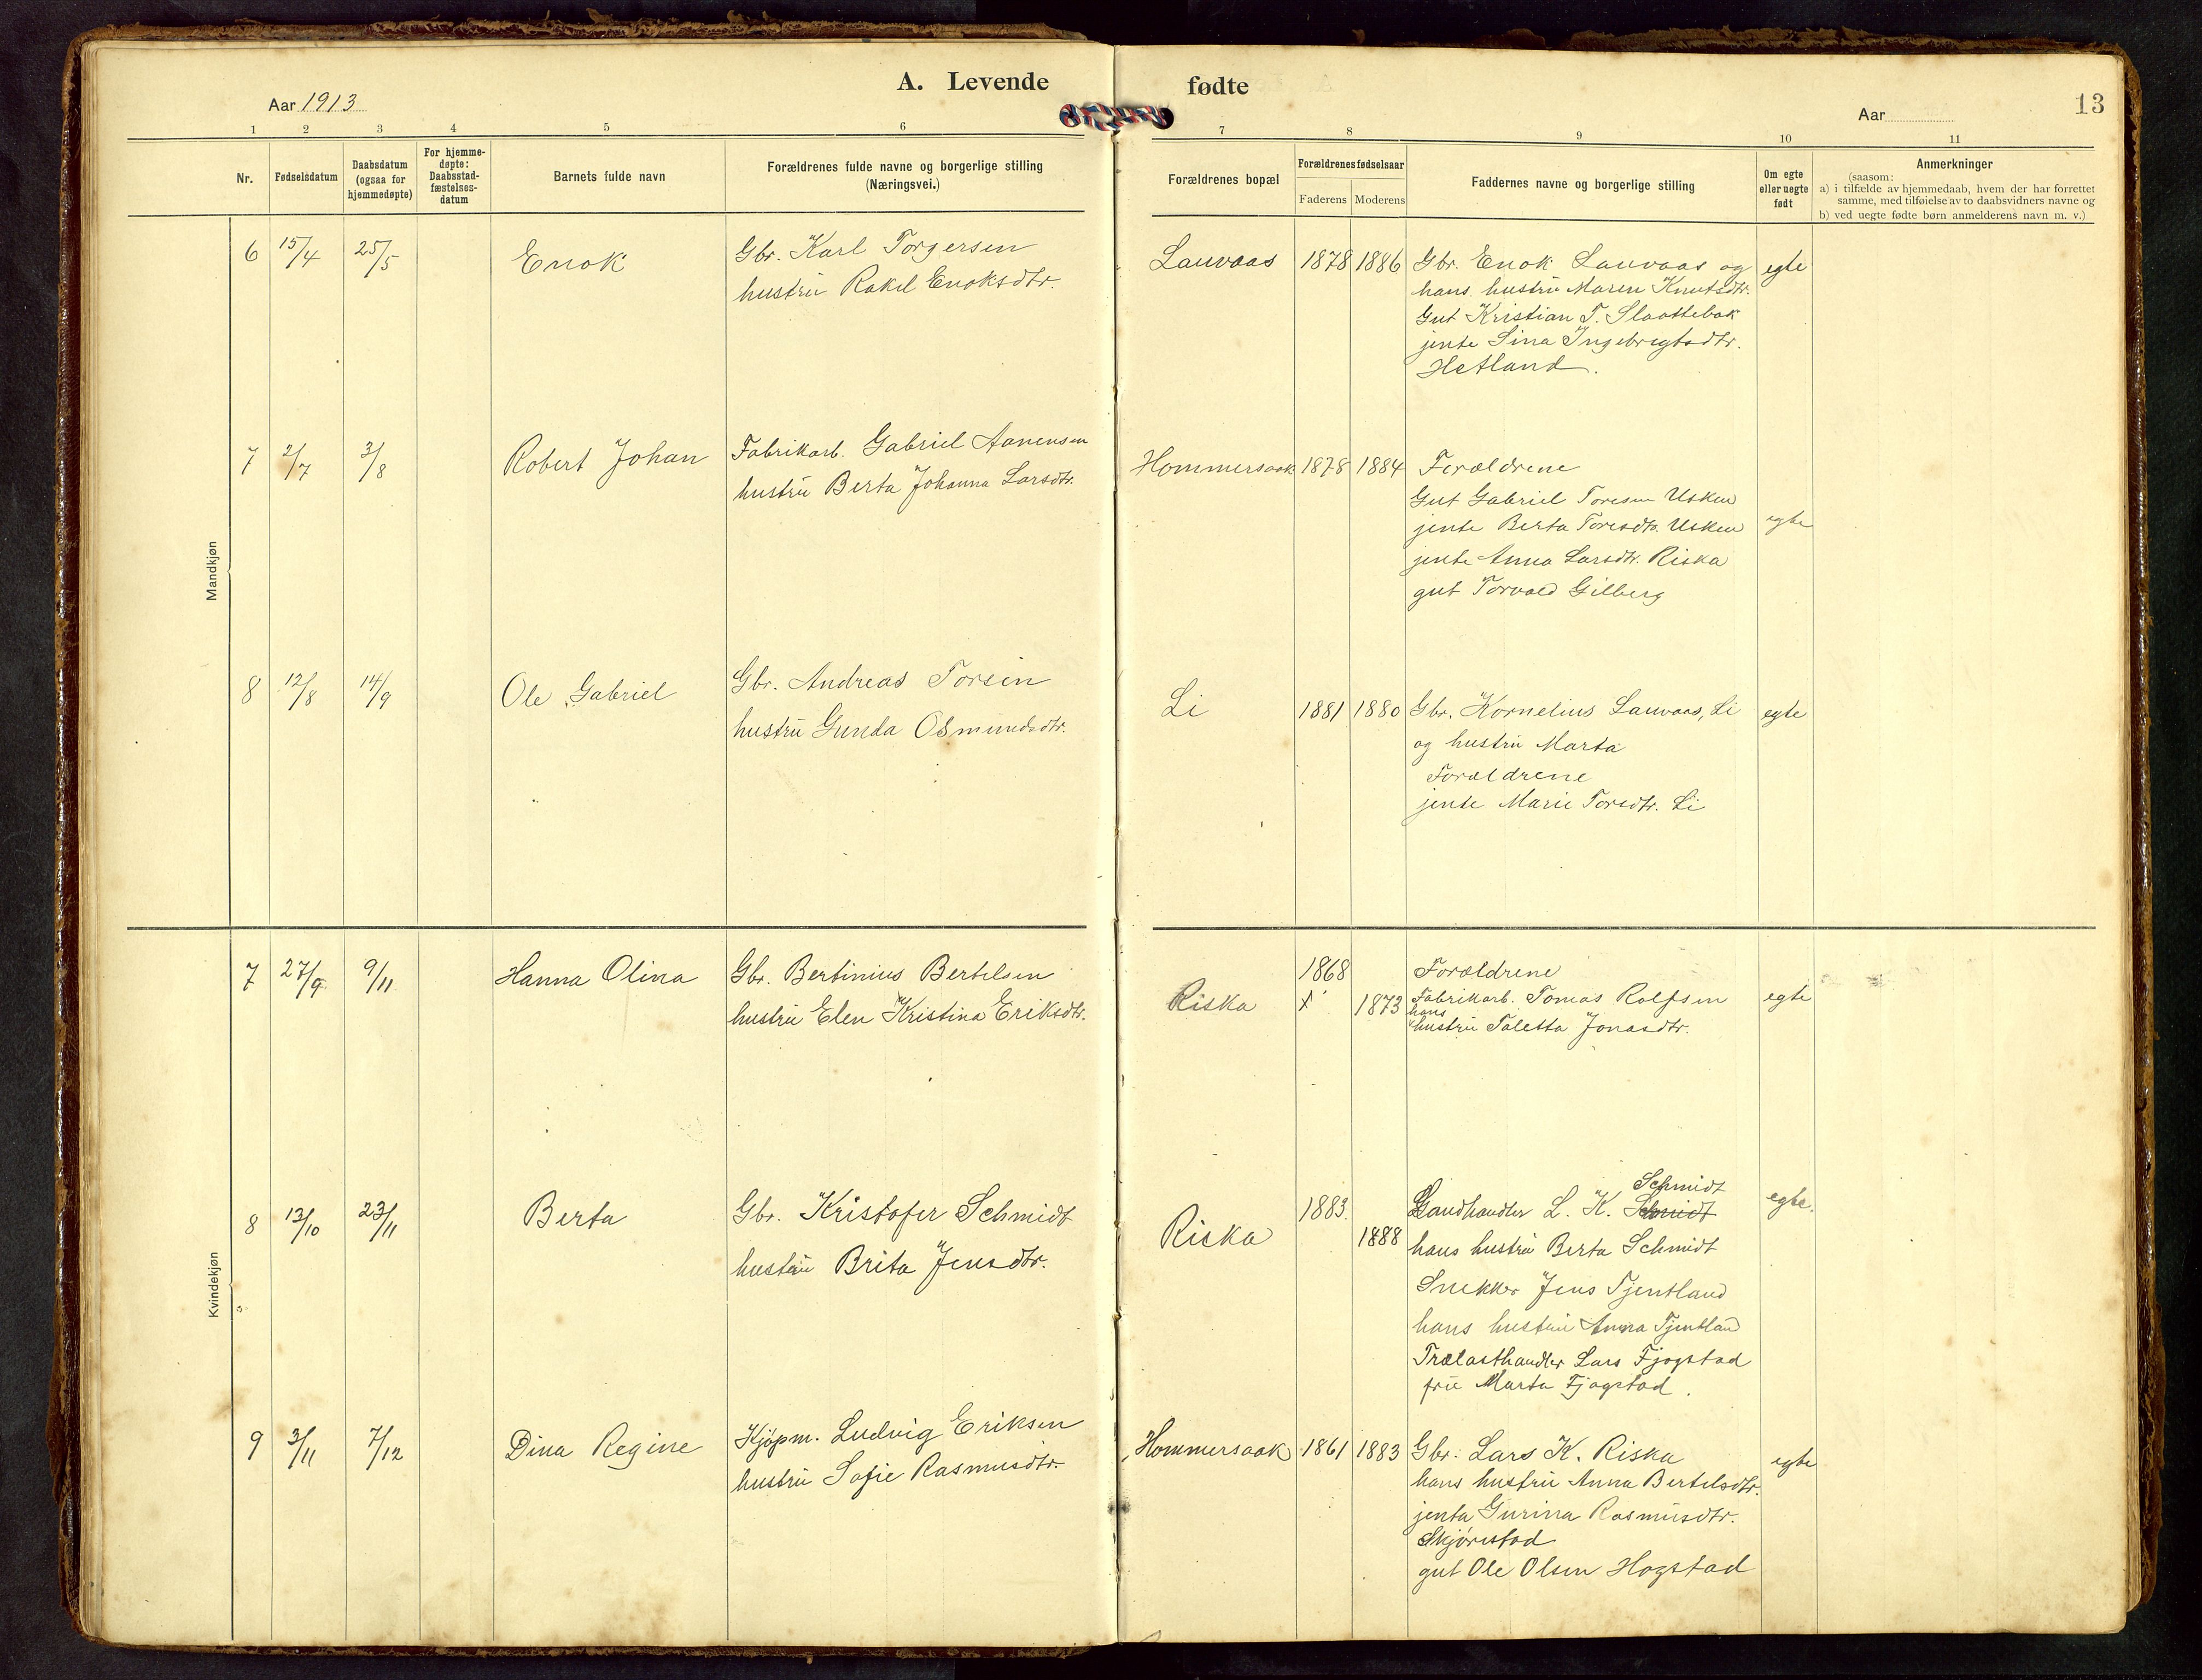 A. Levende fødte
Aar 1913
Aar
13
1 2 3 4 5 6 7 8 9 10 11
Nr.
Fødselsdatum
Daabsdatum
(ogsaa for
hjemmedøpte)
For hjemme-
døpte:
Daabsstad-
fæstelses-
datum
Barnets fulde navn
Forældrenes fulde navne og borgerlige stilling
(Næringsvei.)
Forældrenes bopæl
Forældrenes fødselsaar
Faderens Moderens
Faddernes navne og borgerlige stilling
Om egte
eller uegte
født
Anmerkninger
(saasom:
a) i tilfælde av hjemmedaab, hvem der har forrettet
samme, med tilføielse av to daabsvidners navne og
b) ved uegte fødte børn anmelderens navn m. v.)
Mandkjøn
6 15/4 25/5 Enok
Gbr. Karl Torgersen
hustru Rakel Enoksdtr.
Lauvaas 1878 1886
Gbr. Enok Lauvaas og
hans hustru Maren Knutsdtr.
Gut Kristian T. Slaattebak
jente Sina Ingebrigtsdtr.
Hetland.
egte
7 2/7 3/8 Robert Johan
Fabrikarb. Gabriel Aanensen
hustru Berta Johanna Larsdtr.
Hommersaak 1878 1884
Forældrene
Gut Gabriel Toresen Usken
jente Berta Toresdtr. Usken
jente Anna Larsdtr. Riska
gut Torvald Gilberg
egte
8 12/8 14/9 Ole Gabriel
Gbr. Andreas Torsen
hustru Gunda Osmundsdtr.
Li 1881 1880
Gbr. Kornelius Lauvaas, Li
og hustru Marta
Forældrene
jente Marie Torsdtr. Li
egte
Kvindekjøn
7 27/9 9/11 Hanna Olina
Gbr. Bertinius Bertelsen
hustru Elen Kristina Eriksdtr.
Riska 1868 x 1873
Forældrene
Fabrikarb. Tomas Rolfsen
hans
hustru Taletta Jonasdtr.
egte
8 13/10 23/11 Berta
Gbr. Kristofer Schmidt
hustru Brita Jensdtr.
Riska 1883. 1888
Schmidt
Landhandler L. K. Schmidt
hans hustru Berta Schmidt
Snekker Jens Tjentland
hans hustru Anna Tjentland
Trælasthandler Lars Fjogstad
fru Marta Fjogstad.
egte.
9 3/11 7/12 Dina Regine
Kjøpm. Ludvig Eriksen
hustru Sofie Rasmusdtr.
Hommersaak 1861 1883
Gbr. Lars K. Riska
hans hustru Anna Bertelsdtr.
jenta Gurina Rasmusdtr.
Skjørestad
gut Ole Olsen Hogstad
egte